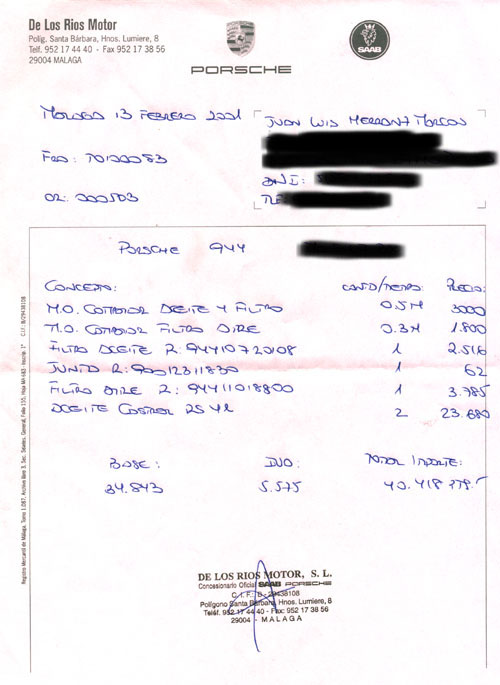 De Los Rios Motor
Polig. Santa Bárbara, Hnos. Lumiere, 8
Telf. 952 17 44 40 - Fax 952 17 38 56
29004 MALAGA
PORSCHE
SAAB
MALAGA 13 FEBRERO 2001
JUAN LUIS MARCOS
FRA: 70100083
DNI:
OR: 000503
PORSCHE 944
CONCEPTO: CANT/TIEMPO: PRECIO:
M.O. CAMBIAR ACEITE Y FILTRO 0.5H 3000
M.O. CAMBIAR FILTRO AIRE 0.3H 1.800
FILTRO ACEITE R: 94410720108 1 2.516
JUNTA R: 90012311830 1 62
FILTRO AIRE R: 94411018800 1 3.785
ACEITE CASTROL RS 4L 2 23.680
BASE: IVA: TOTAL IMPORTE:
34.843 5.575 40.418 PTS.
Registro Mercantil de Málaga, Tomo 1.087, Archivo libro 3, Sec. Stades. General, Folio 155, Hoja MA-682 - Inscrip. 1ª C.I.F.: B/29438108
DE LOS RIOS MOTOR, S. L.
Concesionario Oficial SAAB PORSCHE
C. I. F.: B - 29438108
Polígono Santa Bárbara, Hnos. Lumiere, 8
Telf. 952 17 44 40 - Fax: 952 17 38 56
29004 - MALAGA